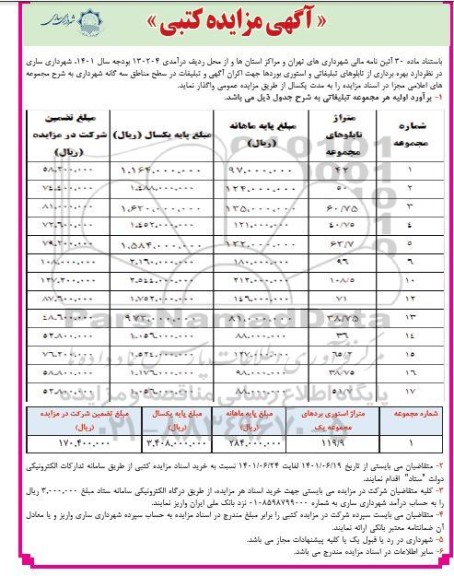 « آگهی مزایده کتبی »
باستناد ماده ۳۰ آئین نامه مالی شهرداری های تهران و مراکز استان ها و از محل ردیف درآمدی ۱۳۰۲۰۴ بودجه سال ۱۴۰۱، شهرداری ساری
در نظردارد بهره برداری از تابلوهای تبلیغاتی و استوری بوردها جهت اکران آگهی و تبلیغات در سطح مناطق سه گانه شهرداری به شرح مجموعه
های اعلامی مجزا در اسناد مزایده را به مدت یکسال از طریق مزایده عمومی واگذار نماید.
۱- برآورد اولیه هر مجموعه تبلیغاتی به شرح جدول ذیل می باشد.
شماره مجموعه | متراژ تابلوهای مجموعه | مبلغ پایه ماهانه (ریال) | مبلغ پایه یکسال (ریال) | مبلغ تضمین شرکت در مزایده (ریال)
۱ | ۴۳ | ۹۷.۰۰۰.۰۰۰ | ۱.۱۶۴.۰۰۰.۰۰۰ | ۵۸.۲۰۰.۰۰۰
۲ | ۵۰ | ۱۲۴.۰۰۰.۰۰۰ | ۱.۴۸۸.۰۰۰.۰۰۰ | ۷۴.۴۰۰.۰۰۰
۳ | ۶۰/۷۵ | ۱۳۵.۰۰۰.۰۰۰ | ۱.۶۲۰.۰۰۰.۰۰۰ | ۸۱.۰۰۰.۰۰۰
۴ | ۴۰/۷۵ | ۱۲۱.۰۰۰.۰۰۰ | ۱.۴۵۲.۰۰۰.۰۰۰ | ۷۲.۶۰۰.۰۰۰
۵ | ۶۳/۷ | ۱۳۲.۰۰۰.۰۰۰ | ۱.۵۸۴.۰۰۰.۰۰۰ | ۷۹.۲۰۰.۰۰۰
۶ | ۹۶ | ۱۸۰.۰۰۰.۰۰۰ | ۲.۱۶۰.۰۰۰.۰۰۰ | ۱۰۸.۰۰۰.۰۰۰
۱۰ | ۱۰۸/۵ | ۲۱۲.۰۰۰.۰۰۰ | ۲.۵۴۴.۰۰۰.۰۰۰ | ۱۲۷.۲۰۰.۰۰۰
۱۲ | ۷۱ | ۱۴۶.۰۰۰.۰۰۰ | ۱.۷۵۲.۰۰۰.۰۰۰ | ۸۷.۶۰۰.۰۰۰
۱۳ | ۳۸/۷۵ | ۸۱.۰۰۰.۰۰۰ | ۹۷۲.۰۰۰.۰۰۰ | ۴۸.۶۰۰.۰۰۰
۱۴ | ۳۶ | ۸۸.۰۰۰.۰۰۰ | ۱.۰۵۶.۰۰۰.۰۰۰ | ۵۲.۸۰۰.۰۰۰
۱۵ | ۱۲۷.۰۰۰.۰۰۰ | ۱.۵۲۴.۰۰۰.۰۰۰ | ۷۶.۲۰۰.۰۰۰
۱۶ | ۳۸/۷۵ | ۹۸.۰۰۰.۰۰۰ | ۱.۱۷۶.۰۰۰.۰۰۰ | ۵۸.۸۰۰.۰۰۰
۱۷ | ۸۸.۰۰۰.۰۰۰ | ۱.۰۵۶.۰۰۰.۰۰۰ | ۵۲.۸۰۰.۰۰۰
شماره مجموعه | متراژ استوری بردهای مجموعه یک | مبلغ پایه ماهانه (ریال) | مبلغ پایه یکسال (ریال) | مبلغ تضمین شرکت در مزایده (ریال)
۱ | ۱۱۹/۹ | ۲۸۴.۰۰۰.۰۰۰ | ۳.۴۰۸.۰۰۰.۰۰۰ | ۱۷۰.۴۰۰.۰۰۰
۲- متقاضیان می بایستی از تاریخ ۱۴۰۱/۰۶/۱۹ لغایت ۱۴۰۱/۰۶/۲۴ نسبت به خرید اسناد مزایده کتبی از طریق سامانه تدارکات الکترونیکی
دولت "ستاد" اقدام نمایند.
۳- کلیه متقاضیان شرکت در مزایده می بایستی جهت خرید اسناد هر مزایده، از طریق درگاه الکترونیکی سامانه ستاد مبلغ ۳.۰۰۰.۰۰۰ ریال
را به حساب درآمد شهرداری ساری به شماره ۰۱۰۸۵۹۸۷۹۹۰۰۰ نزد بانک ملی ایران واریز نمایند.
۴- متقاضیان می بایست سپرده شرکت در مزایده کتبی را برابر مبلغ مندرج در اسناد مزایده به حساب سپرده شهرداری ساری واریز و یا معادل
آن ضمانتنامه معتبر بانکی ارائه نمایند.
۵- شهرداری در رد یا قبول یک یا کلیه پیشنهادات مجاز می باشد.
۶- سایر اطلاعات در اسناد مزایده مندرج می باشد.
ParsNamadData